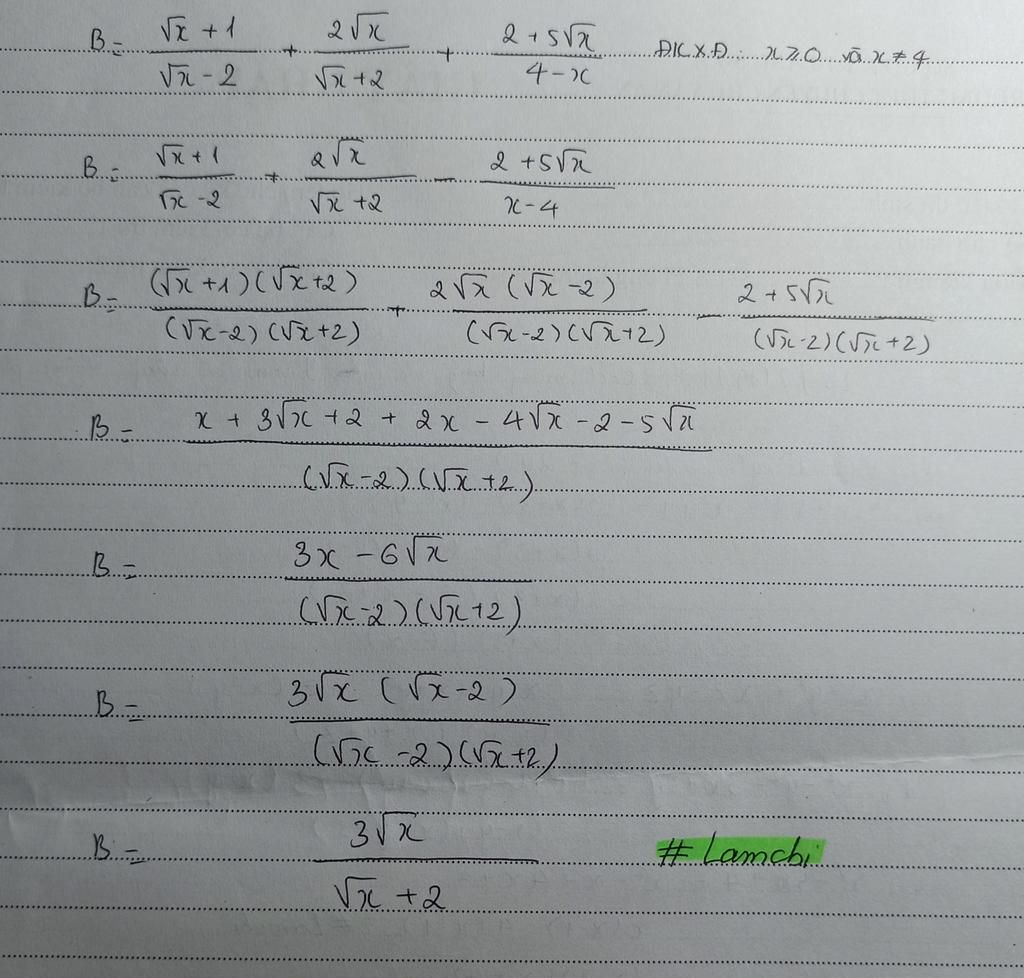 B = (√x + 1)/(√x - 2) + 2√x/(√x + 2) + (2 + 5√x)/(4 - x) ĐKXĐ: x ≥ 0 và x ≠ 4
B = (√x + 1)/(√x - 2) + 2√x/(√x + 2) - (2 + 5√x)/(x - 4)
B = (√x + 1)(√x + 2)/(√x - 2)(√x + 2) + 2√x (√x - 2)/(√x - 2)(√x + 2) - (2 + 5√x)/(√x - 2)(√x + 2)
B = (x + 3√x + 2 + 2x - 4√x - 2 - 5√x)/(√x - 2)(√x + 2)
B = (3x - 6√x)/(√x - 2)(√x + 2)
B = 3√x (√x - 2)/(√x - 2)(√x + 2)
B = 3√x/(√x + 2) # Lamchi